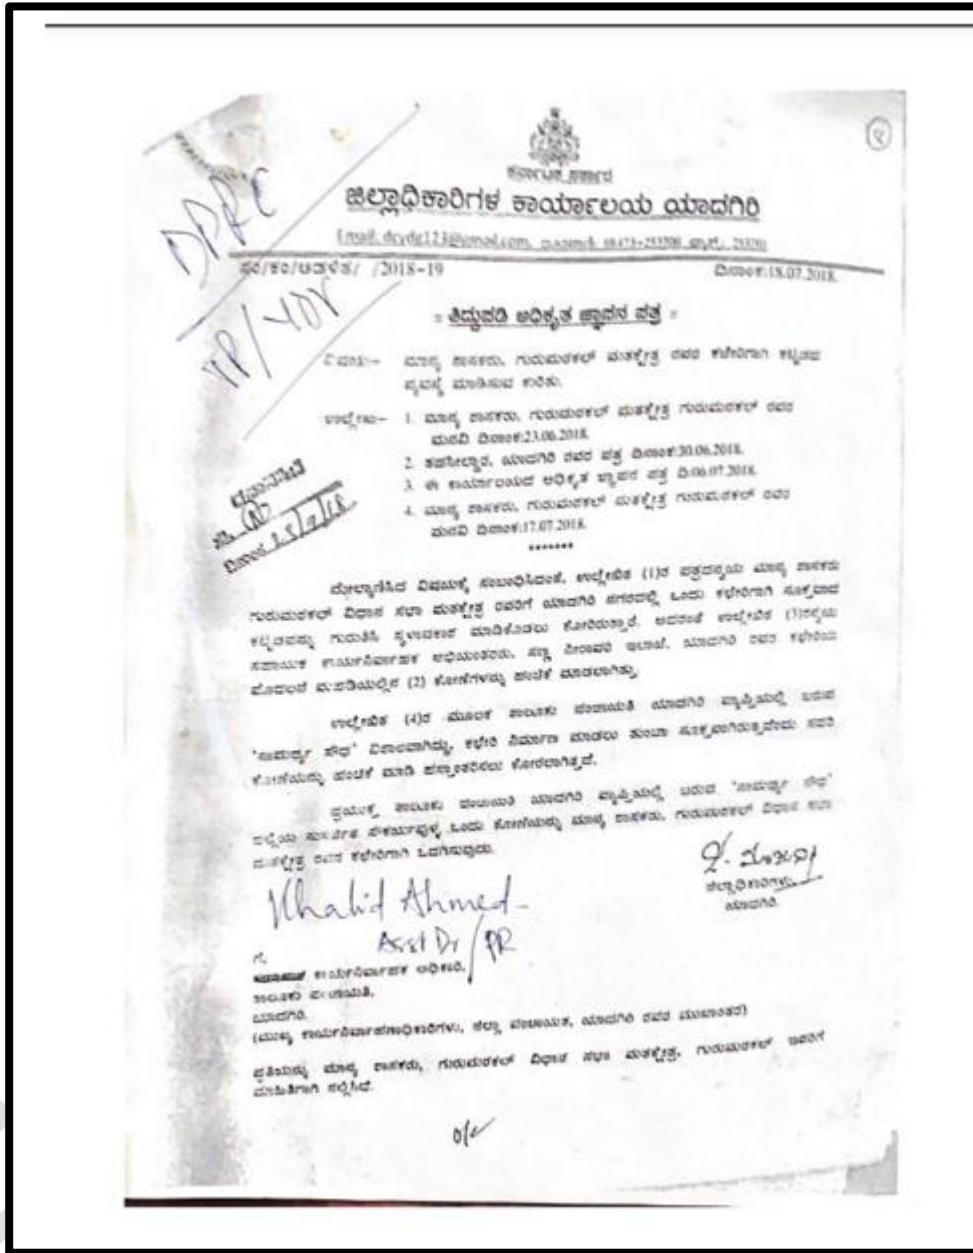 ೪
DPRC
TP/YDR
ಕರ್ನಾಟಕ ಸರ್ಕಾರ
ಜಿಲ್ಲಾಧಿಕಾರಿಗಳ ಕಾರ್ಯಾಲಯ ಯಾದಗಿರಿ
Email: dcydg123@gmail.com,
/2018-19 ದಿನಾಂಕ:18.07.2018.
:: ತಿದ್ದುಪಡಿ ಅಧಿಕೃತ ಜ್ಞಾಪನ ಪತ್ರ ::
ವಿಷಯ:- ಮಾನ್ಯ ಶಾಸಕರು, ಗುರುಮಠಕಲ್ ಮತಕ್ಷೇತ್ರ ರವರ ಕಚೇರಿಗಾಗಿ ಕಟ್ಟಡದ
ವ್ಯವಸ್ಥೆ ಮಾಡಿಸುವ ಕುರಿತು.
ಉಲ್ಲೇಖ:- 1. ಮಾನ್ಯ ಶಾಸಕರು, ಗುರುಮಠಕಲ್ ಮತಕ್ಷೇತ್ರ ಗುರುಮಠಕಲ್ ರವರ
ಮನವಿ ದಿನಾಂಕ:23.06.2018.
2. ತಹಸೀಲ್ದಾರ, ಯಾದಗಿರಿ ರವರ ಪತ್ರ ದಿನಾಂಕ:30.06.2018.
3. ಈ ಕಾರ್ಯಾಲಯದ ಅಧಿಕೃತ ಜ್ಞಾಪನ ಪತ್ರ ದಿ:06.07.2018.
4. ಮಾನ್ಯ ಶಾಸಕರು, ಗುರುಮಠಕಲ್ ಮತಕ್ಷೇತ್ರ ಗುರುಮಠಕಲ್ ರವರ
ಮನವಿ ದಿನಾಂಕ:17.07.2018.
*******
ಮೇಲ್ಕಾಣಿಸಿದ ವಿಷಯಕ್ಕೆ ಸಂಬಂಧಿಸಿದಂತೆ, ಉಲ್ಲೇಖಿತ (1)ರ ಪತ್ರದನ್ವಯ ಮಾನ್ಯ ಶಾಸಕರು
ಗುರುಮಠಕಲ್ ವಿಧಾನ ಸಭಾ ಮತಕ್ಷೇತ್ರ ರವರಿಗೆ ಯಾದಗಿರಿ ನಗರದಲ್ಲಿ ಒಂದು ಕಛೇರಿಗಾಗಿ ಸೂಕ್ತವಾದ
ಕಟ್ಟಡವನ್ನು ಗುರುತಿಸಿ ಸ್ಥಳಾವಕಾಶ ಮಾಡಿಕೊಡಲು ಕೋರಿರುತ್ತಾರೆ. ಅದರಂತೆ ಉಲ್ಲೇಖಿತ (3)ರನ್ವಯ
ಸಹಾಯಕ ಕಾರ್ಯನಿರ್ವಾಹಕ ಅಭಿಯಂತರರು, ಸಣ್ಣ ನೀರಾವರಿ ಇಲಾಖೆ, ಯಾದಗಿರಿ ರವರ ಕಛೇರಿಯ
ಮೊದಲನೆ ಮಹಡಿಯಲ್ಲಿನ (2) ಕೋಣೆಗಳನ್ನು ಹಂಚಿಕೆ ಮಾಡಲಾಗಿತ್ತು.
ಉಲ್ಲೇಖಿತ (4)ರ ಮೂಲಕ ತಾಲೂಕು ಪಂಚಾಯತಿ ಯಾದಗಿರಿ ವ್ಯಾಪ್ತಿಯಲ್ಲಿ ಬರುವ
'ಸಾಮರ್ಥ್ಯ ಸೌಧ' ವಿಶಾಲವಾಗಿದ್ದು, ಕಛೇರಿ ನಿರ್ಮಾಣ ಮಾಡಲು ತುಂಬಾ ಸೂಕ್ತವಾಗಿರುತ್ತವೆಂದು ಸದರಿ
ಕೋಣೆಯನ್ನು ಹಂಚಿಕೆ ಮಾಡಿ ಹಸ್ತಾಂತರಿಸಲು ಕೋರಲಾಗಿತ್ತದೆ.
ಪ್ರಯುಕ್ತ ತಾಲೂಕು ಪಂಚಾಯತಿ ಯಾದಗಿರಿ ವ್ಯಾಪ್ತಿಯಲ್ಲಿ ಬರುವ 'ಸಾಮರ್ಥ್ಯ ಸೌಧ'
ಸೌಕರ್ಯವುಳ್ಳ ಒಂದು ಕೋಣೆಯನ್ನು ಮಾನ್ಯ ಶಾಸಕರು, ಗುರುಮಠಕಲ್ ವಿಧಾನ ಸಭಾ
ಮತಕ್ಷೇತ್ರ ರವರ ಕಛೇರಿಗಾಗಿ ಒದಗಿಸುವುದು.
ಜಿಲ್ಲಾಧಿಕಾರಿಗಳು
ಯಾದಗಿರಿ.
Khalid Ahmed
Asst Dr/PR
ಗೆ,
ಕಾರ್ಯನಿರ್ವಾಹಕ ಅಧಿಕಾರಿ,
ತಾಲೂಕು ಪಂಚಾಯತಿ,
ಯಾದಗಿರಿ.
(ಮುಖ್ಯ ಕಾರ್ಯನಿರ್ವಾಹಣಾಧಿಕಾರಿಗಳು, ಜಿಲ್ಲಾ ಪಂಚಾಯತ, ಯಾದಗಿರಿ ರವರ ಮುಖಾಂತರ)
ಪ್ರತಿಯನ್ನು ಮಾನ್ಯ ಶಾಸಕರು, ಗುರುಮಠಕಲ್ ವಿಧಾನ ಸಭಾ ಮತಕ್ಷೇತ್ರ, ಗುರುಮಠಕಲ್ ಇವರಿಗೆ
ಮಾಹಿತಿಗಾಗಿ ಸಲ್ಲಿಸಿದೆ.